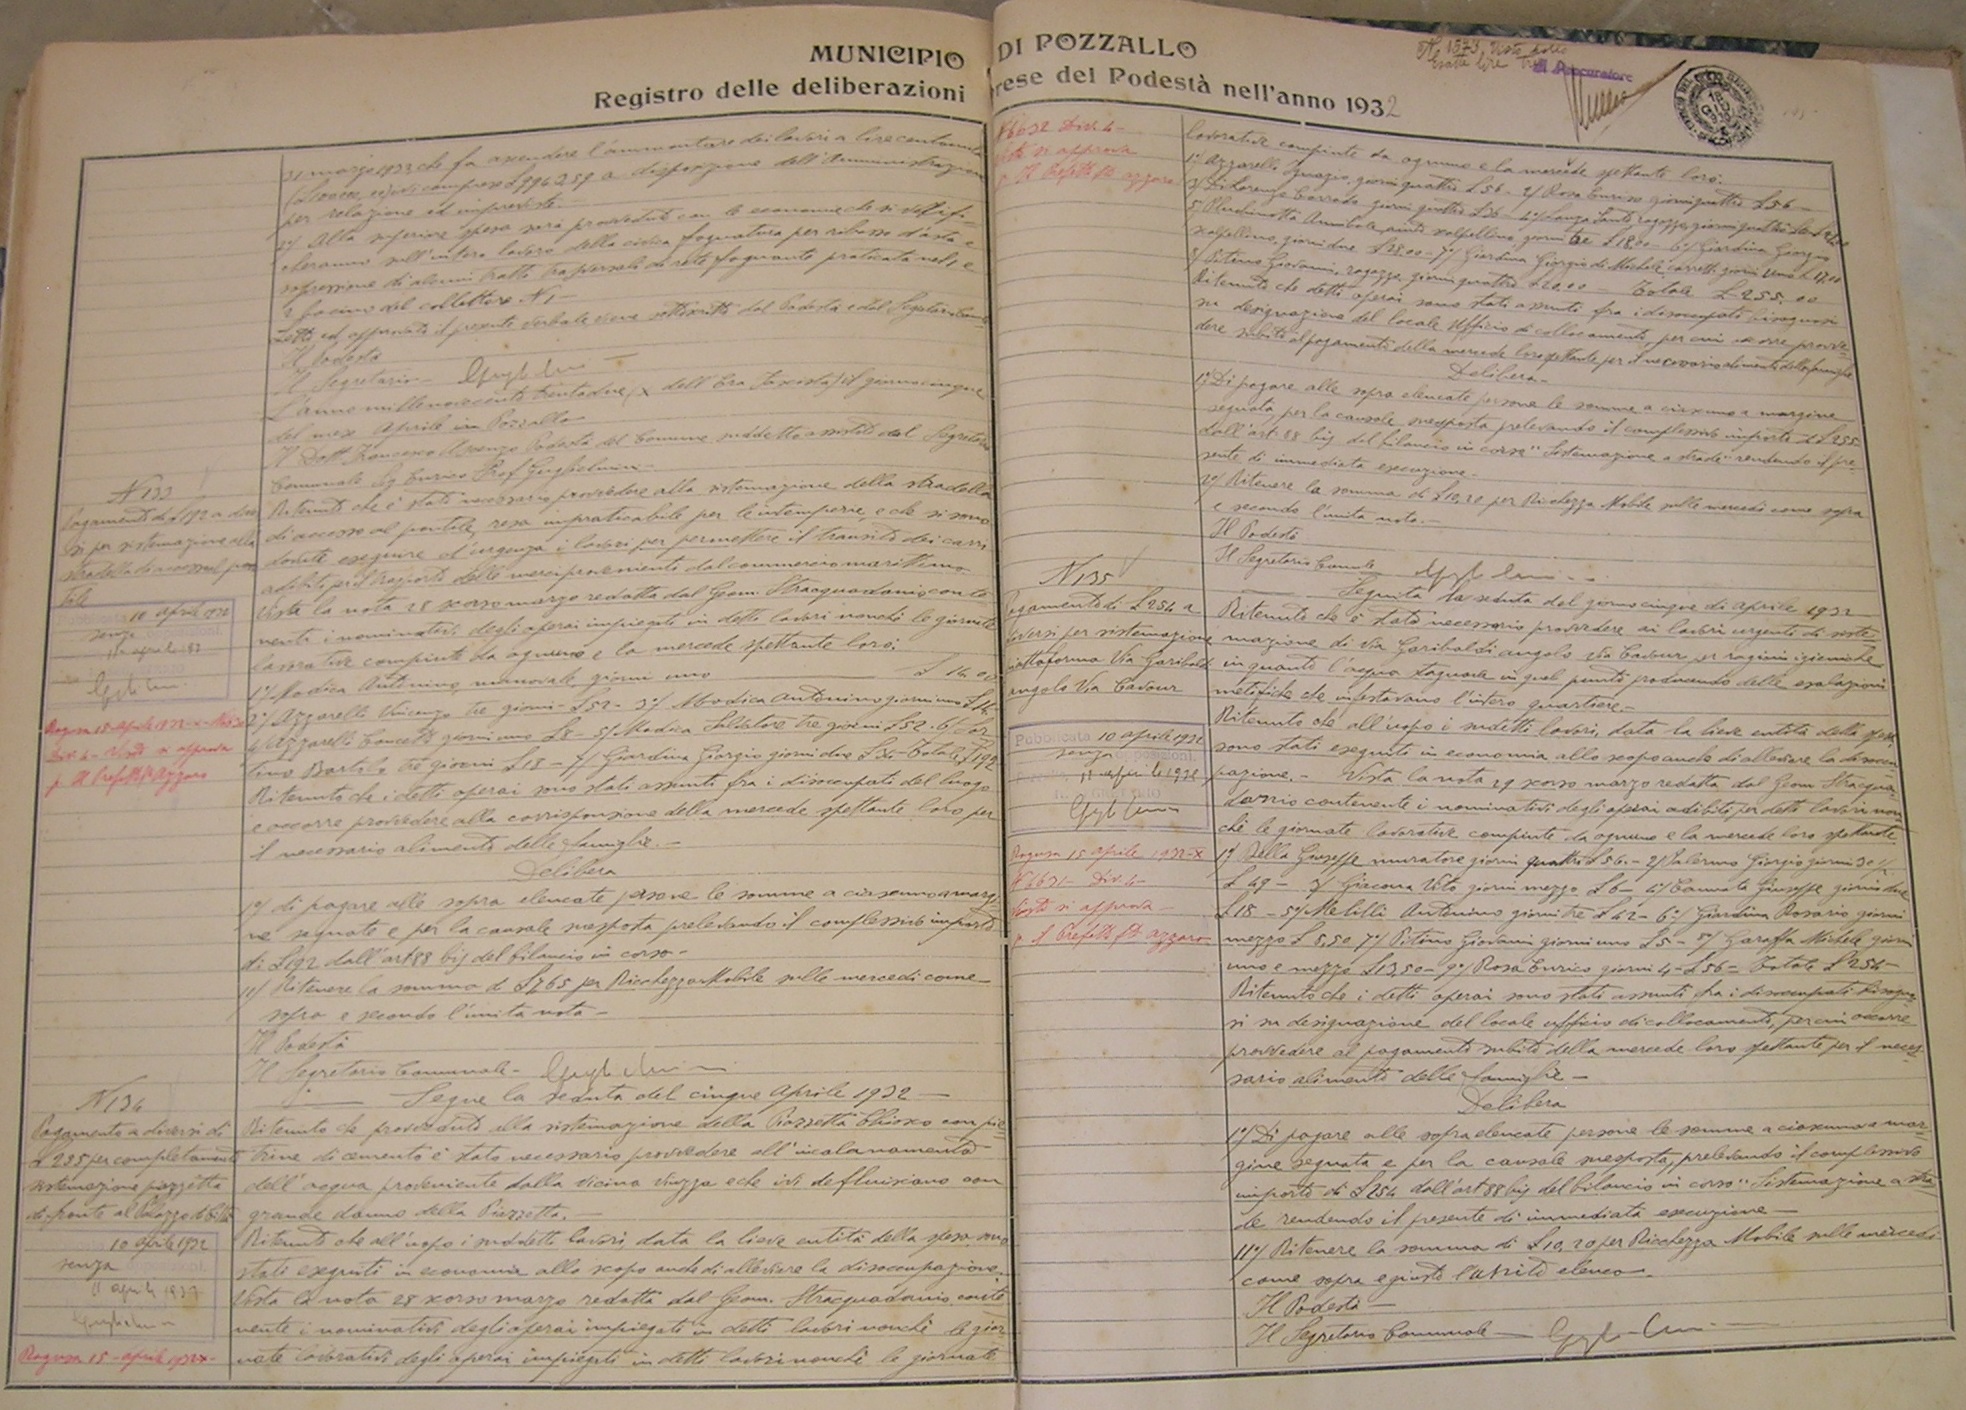 MUNICIPIO DI POZZALLO
Registro delle deliberazioni prese del Podestà nell'anno 1932
31 marzo 1932 che fa ascendere l'ammontare dei lavori a lire
a disposizione dell'Amministrazione
per relazione ed impreviste.
2°/ Alla superiore spesa sarà provveduto con le economie che si
sull'intero lavoro della civica fognatura per ribasso d'asta e
soppressione di alcuni tratti trasversali di rete fognante
del collettore N 1 -
Letto ed approvato il presente verbale viene sottoscritto dal Podestà e dal Segretario
Il Podestà
Il Segretario -
L'anno millenovecentotrentadue, (X dell'Era Fascista) il giorno cinque
del mese Aprile in Pozzallo
Il Dott. Francesco Podestà del Comune suddetto assistito dal Segretario
Comunale Sig. Enrico Prof. Guglielmini -
N 133
Pagamento di £ 192 a diver
si per sistemazione alla
stradella di accesso al pon
tile
10 aprile 1932
senza
Ragusa 15 Aprile 1932-X-
Div. 4 - Visto si approva
p. Il Prefetto fto Azzaro
Ritenuto che è stato necessario provvedere alla sistemazione della stradella
di accesso al pontile, resa impraticabile per le intemperie, e che si sono
dovute eseguire d'urgenza i lavori per permettere il transito dei carri
adibiti pel trasporto delle merci provenienti dal commercio marittimo.
Vista la nota 28 scorso marzo redatta dal Geom. Stracquadanio conte
nente i nominativi degli operai impiegati in detti lavori nonchè le giornate
lavorative compiute da ognuno e la mercede spettante loro:
1°/ Modica Antonino, manovale giorni uno £ 14.00
2°/ Azzarelli Vincenzo tre giorni - £ 52 - 3°/ Modica Antonino giorni uno £ 14
4°/ Azzarelli Concetto giorni uno £ 8 - 5°/ Modica Salvatore tre giorni £ 52 - 6°/
Bartolo tre giorni £ 18 - 7°/ Giardina Giorgio giorni due £ 34 - Totale £ 192
Ritenuto che i detti operai sono stati assunti fra i disoccupati del luogo
e occorre provvedere alla corresponsione della mercede spettante loro per
il necessario alimento delle famiglie. -
Delibera
1°/ di pagare alle sopra elencate persone le somme a ciascuno a margi
ne segnate e per la causale suesposta prelevando il complessivo importo
di £ 192 dall'art 88 bis del bilancio in corso -
11°/ Ritenere la somma di £ 7,65 per Ricchezza Mobile sulle mercedi come
sopra e secondo l'unita nota -
Il Podestà
Il Segretario Comunale -
Segue la seduta del cinque Aprile 1932 -
N 134
Pagamento a diversi di
£ 255 per completamento
sistemazione piazzetta
di fronte al Palazzo di Città
10 aprile 1932
senza
11 aprile 1932
Ragusa 15 - aprile 1932-X-
Ritenuto che provveduto alla sistemazione della Piazzetta Chiosco con pia
trine di cemento è stato necessario provvedere all'incalanamento
dell'acqua proveniente dalla vicina viuzza e che ivi defluiscano con
grande danno della Piazzetta. -
Ritenuto che all'uopo i suddetti lavori, data la lieve entità della spesa, sono
stati eseguiti in economia allo scopo anche di alleviare la disoccupazione.
Vista la nota 28 scorso marzo redatta dal Geom. Stracquadanio, conte
nente i nominativi degli operai impiegati in detti lavori nonchè le gior
nate lavorativi degli operai impiegati in detti lavori nonchè le giornate
N. 1573
Esatte lire Tre
Il Procuratore
N 6632 Div. 4 -
Visto si approva
p. Il Prefetto fto Azzaro
lavorative compiute da ognuno e la mercede spettante loro:
1°/ Azzarelli Ignazio, giorni quattro £ 56 - 2°/ Rosa Enrico giorni quattro £ 56 -
3°/ Di Lorenzo Corrado giorni quattro £ 36 - 4°/ ragazzo, giorni quattro
5°/ Annibale, scalpellino, giorni tre £ 18.00 - 6°/ Giardina Giorgio
scalpellino, giorni due £ 28.00 - 7°/ Giardina Giorgio di Michele, carretti giorni uno £ 17,00
8°/ Pitino Giovanni, ragazzo, giorni quattro £ 20.00 - Totale £ 255.00
Ritenuto che detti operai sono stati assunti fra i disoccupati bisognosi
su designazione del locale Ufficio di collocamento, per cui occorre provve-
dere subito al pagamento della mercede loro spettante per il necessario alimento delle famiglie
Delibera -
1°/ Di pagare alle sopra elencate persone le somme a ciascuno a margine
segnata, per la causale suesposta prelevando il complessivo importo di £ 255
dall'art 88 bis del bilancio in corso "Sistemazione a strade" rendendo il pre-
sente di immediata esecuzione -
2°/ Ritenere la somma di £ 10,20 per Ricchezza Mobile sulle mercedi come sopra
e secondo l'unita nota. -
Il Podestà
Il Segretario Comunale
Seguita la seduta del giorno cinque di Aprile 1932
N 135
Pagamento di £ 254 a
diversi per sistemazione
piattaforma Via Garibaldi
angolo Via Cavour
Pubblicata 10 aprile 1932
senza opposizioni.
11 aprile 1932
IL SEGRETARIO
Ragusa 15 Aprile 1932-X
N 6631 - Div. 4 -
Visto si approva -
p. Il Prefetto fto Azzaro
Ritenuto che è stato necessario provvedere ai lavori urgenti di siste
mazione di via Garibaldi angolo Via Cavour per ragioni igieniche
in quanto l'acqua stagnava in quel punto producendo delle esalazioni
mefitiche che infestavano l'intero quartiere -
Ritenuto che all'uopo i sudetti lavori, data la lieve entità della spesa
sono stati eseguiti in economia allo scopo anche di alleviare la disoccu
pazione. - Vista la nota 29 scorso marzo redatta dal Geom Stracqua-
danio contenente i nominativi degli operai adibiti per detti lavori non
chè le giornate lavorative compiute da ognuno e la mercede loro spettante
1°/ Bella Giuseppe muratore giorni quattro £ 56. - 2°/ Salerno Giorgio giorni 3 e ½
£ 49 - 3°/ Giacona Vito giorni mezzo £ 6 - 4°/ Cannata Giuseppe giorni due
£ 18 - 5°/ Melilli Antonino giorni tre £ 42 - 6°/ Giardina Rosario giorni
mezzo £ 5,50 7°/ Pitino Giovanni giorni uno £ 5 - 8°/ Garaffa Michele giorni
uno e mezzo £ 13,50 - 9°/ Rosa Enrico giorni 4 - £ 56 - Totale £ 254 -
Ritenuto che i detti operai sono stati assunti fra i disoccupati bisogno
si su designazione del locale ufficio di collocamento, per cui occorre
provvedere al pagamento subito della mercede loro spettante per il neces
sario alimento delle famiglie -
Delibera
1°/ Di pagare alle sopra elencate persone le somme a ciascuno a mar-
gine segnata e per la causale suesposta, prelevando il complessivo
importo di £ 254 dall'art 88 bis del bilancio in corso "Sistemazione a stra
de rendendo il presente di immediata esecuzione -
11°/ Ritenere la somma di £ 10,20 per Ricchezza Mobile sulle mercedi
come sopra e giusto l'unito elenco -
Il Podestà -
Il Segretario Comunale -